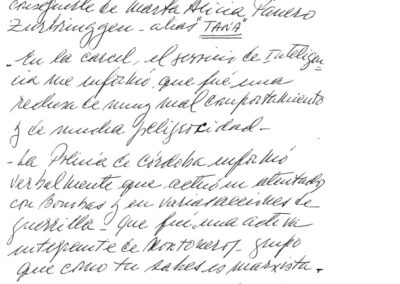 consejuerte de Marta Alicia Panero
Zurbringgen - alias "TANA"
- En la carcel, el servicio de Inteligen-
cia me informó que fué una
reclusa de muy mal comportamiento
y de mucha peligrosidad -
- La Policia de córdoba informó
verbalmente que actuó en atentados
con Bombas y en varias acciones de
guerrilla - que fué una activa
integrante de Montoneros - grupo
que como tu sabes es marxista.